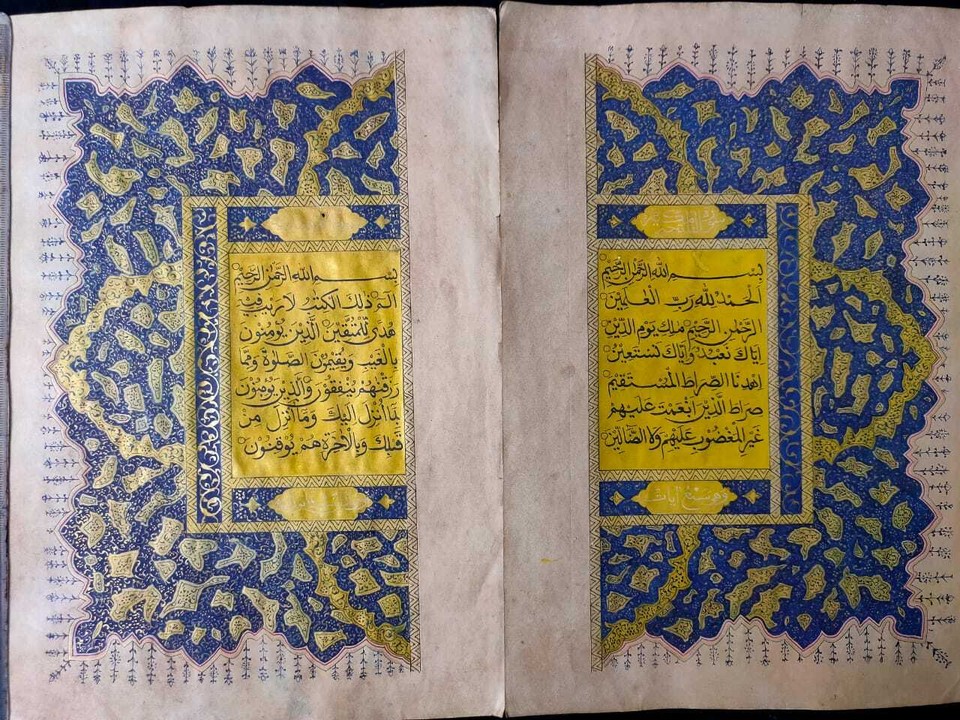 بِسْمِ اللّٰهِ الرَّحْمٰنِ الرَّحِيمِ
اَلْحَمْدُ لِلّٰهِ رَبِّ الْعٰلَمِينَ
الرَّحْمٰنِ الرَّحِيمِ مٰلِكِ يَوْمِ الدِّينِ
اِيَّاكَ نَعْبُدُ وَاِيَّاكَ نَسْتَعِينُ
اِهْدِنَا الصِّرَاطَ الْمُسْتَقِيمَ
صِرَاطَ الَّذِينَ اَنْعَمْتَ عَلَيْهِمْ
غَيْرِ الْمَغْضُوبِ عَلَيْهِمْ وَلَا الضَّالِّينَ
وهي سبع ايات
بِسْمِ اللّٰهِ الرَّحْمٰنِ الرَّحِيمِ
الٓمٓ ذٰلِكَ الْكِتٰبُ لَا رَيْبَ فِيهِ
هُدًى لِلْمُتَّقِينَ الَّذِينَ يُؤْمِنُونَ
بِالْغَيْبِ وَيُقِيمُونَ الصَّلٰوةَ وَمِمَّا
رَزَقْنٰهُمْ يُنْفِقُونَ وَالَّذِينَ يُؤْمِنُونَ
بِمَا اُنْزِلَ اِلَيْكَ وَمَا اُنْزِلَ مِنْ
قَبْلِكَ وَبِالْاٰخِرَةِ هُمْ يُوقِنُونَ